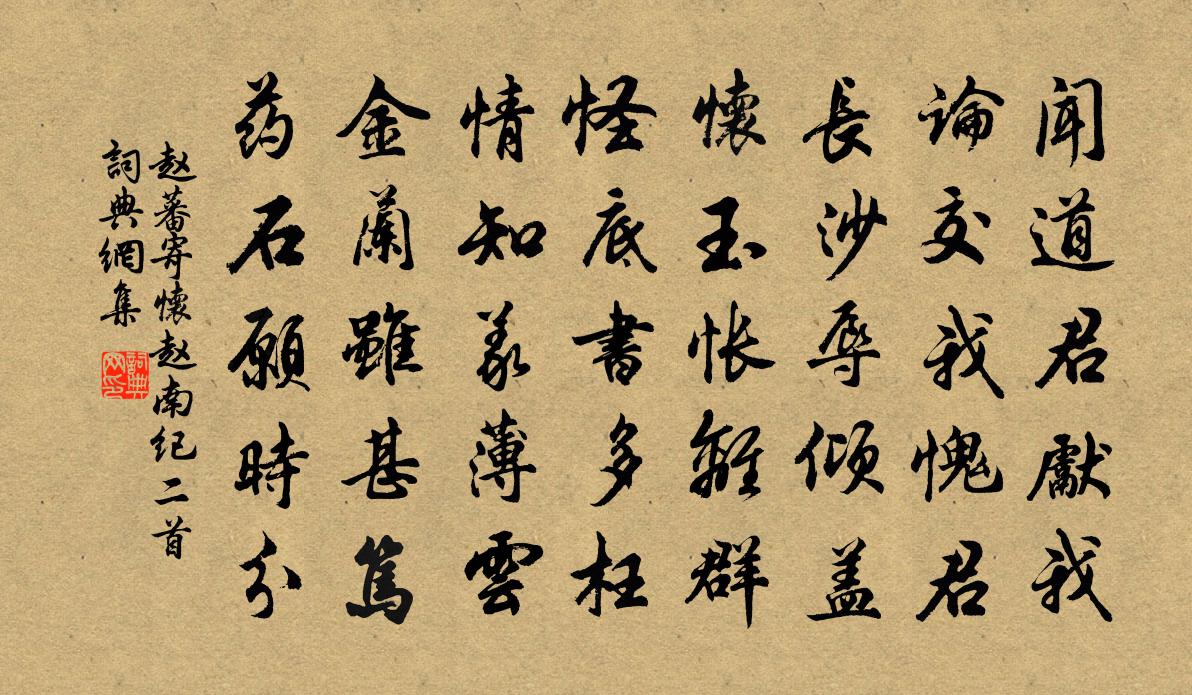 闻道君獻我
論交我愧君
長沙辱倾盖
懷玉怅離群
怪底書多枉
情知義薄雲
金蘭雖甚篤
药石願時分
赵蕃寄懷赵南纪二首
詞典網集
詞典網印